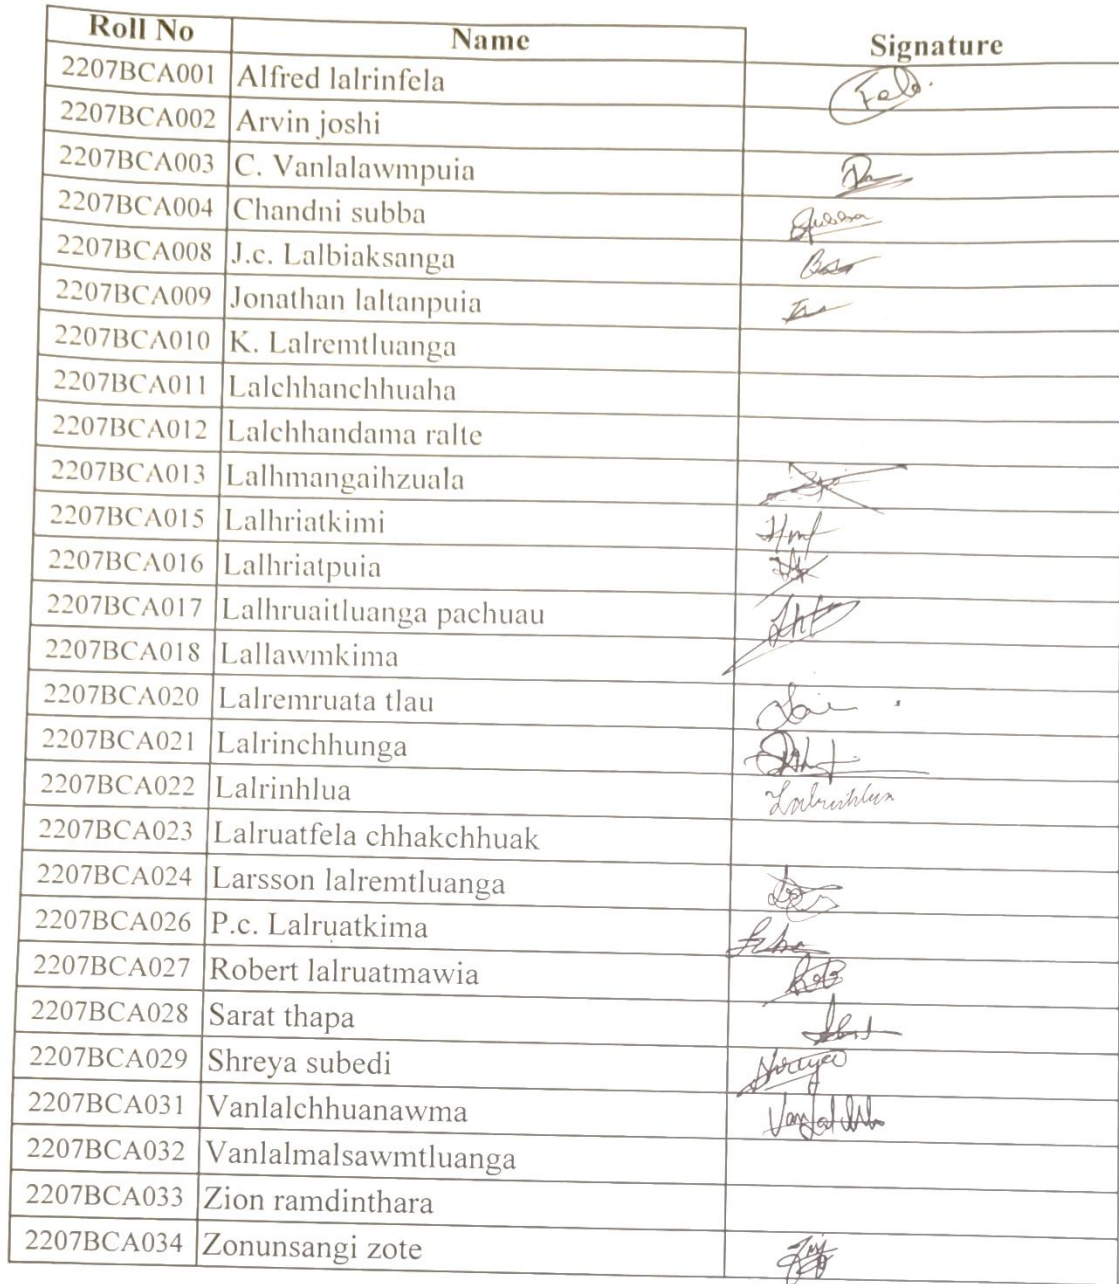 Roll No Name Signature
2207BCA001 Alfred lalrinfela Fela.
2207BCA002 Arvin joshi
2207BCA003 C. Vanlalawmpuia
2207BCA004 Chandni subba
2207BCA008 J.c. Lalbiaksanga
2207BCA009 Jonathan laltanpuia
2207BCA010 K. Lalremtluanga
2207BCA011 Lalchhanchhuaha
2207BCA012 Lalchhandama ralte
2207BCA013 Lalhmangaihzuala
2207BCA015 Lalhriatkimi
2207BCA016 Lalhriatpuia
2207BCA017 Lalhruaitluanga pachuau
2207BCA018 Lallawmkima
2207BCA020 Lalremruata tlau
2207BCA021 Lalrinchhunga
2207BCA022 Lalrinhlua Lalrinhlua
2207BCA023 Lalruatfela chhakchhuak
2207BCA024 Larsson lalremtluanga
2207BCA026 P.c. Lalruatkima
2207BCA027 Robert lalruatmawia
2207BCA028 Sarat thapa
2207BCA029 Shreya subedi Shreya
2207BCA031 Vanlalchhuanawma
2207BCA032 Vanlalmalsawmtluanga
2207BCA033 Zion ramdinthara
2207BCA034 Zonunsangi zote